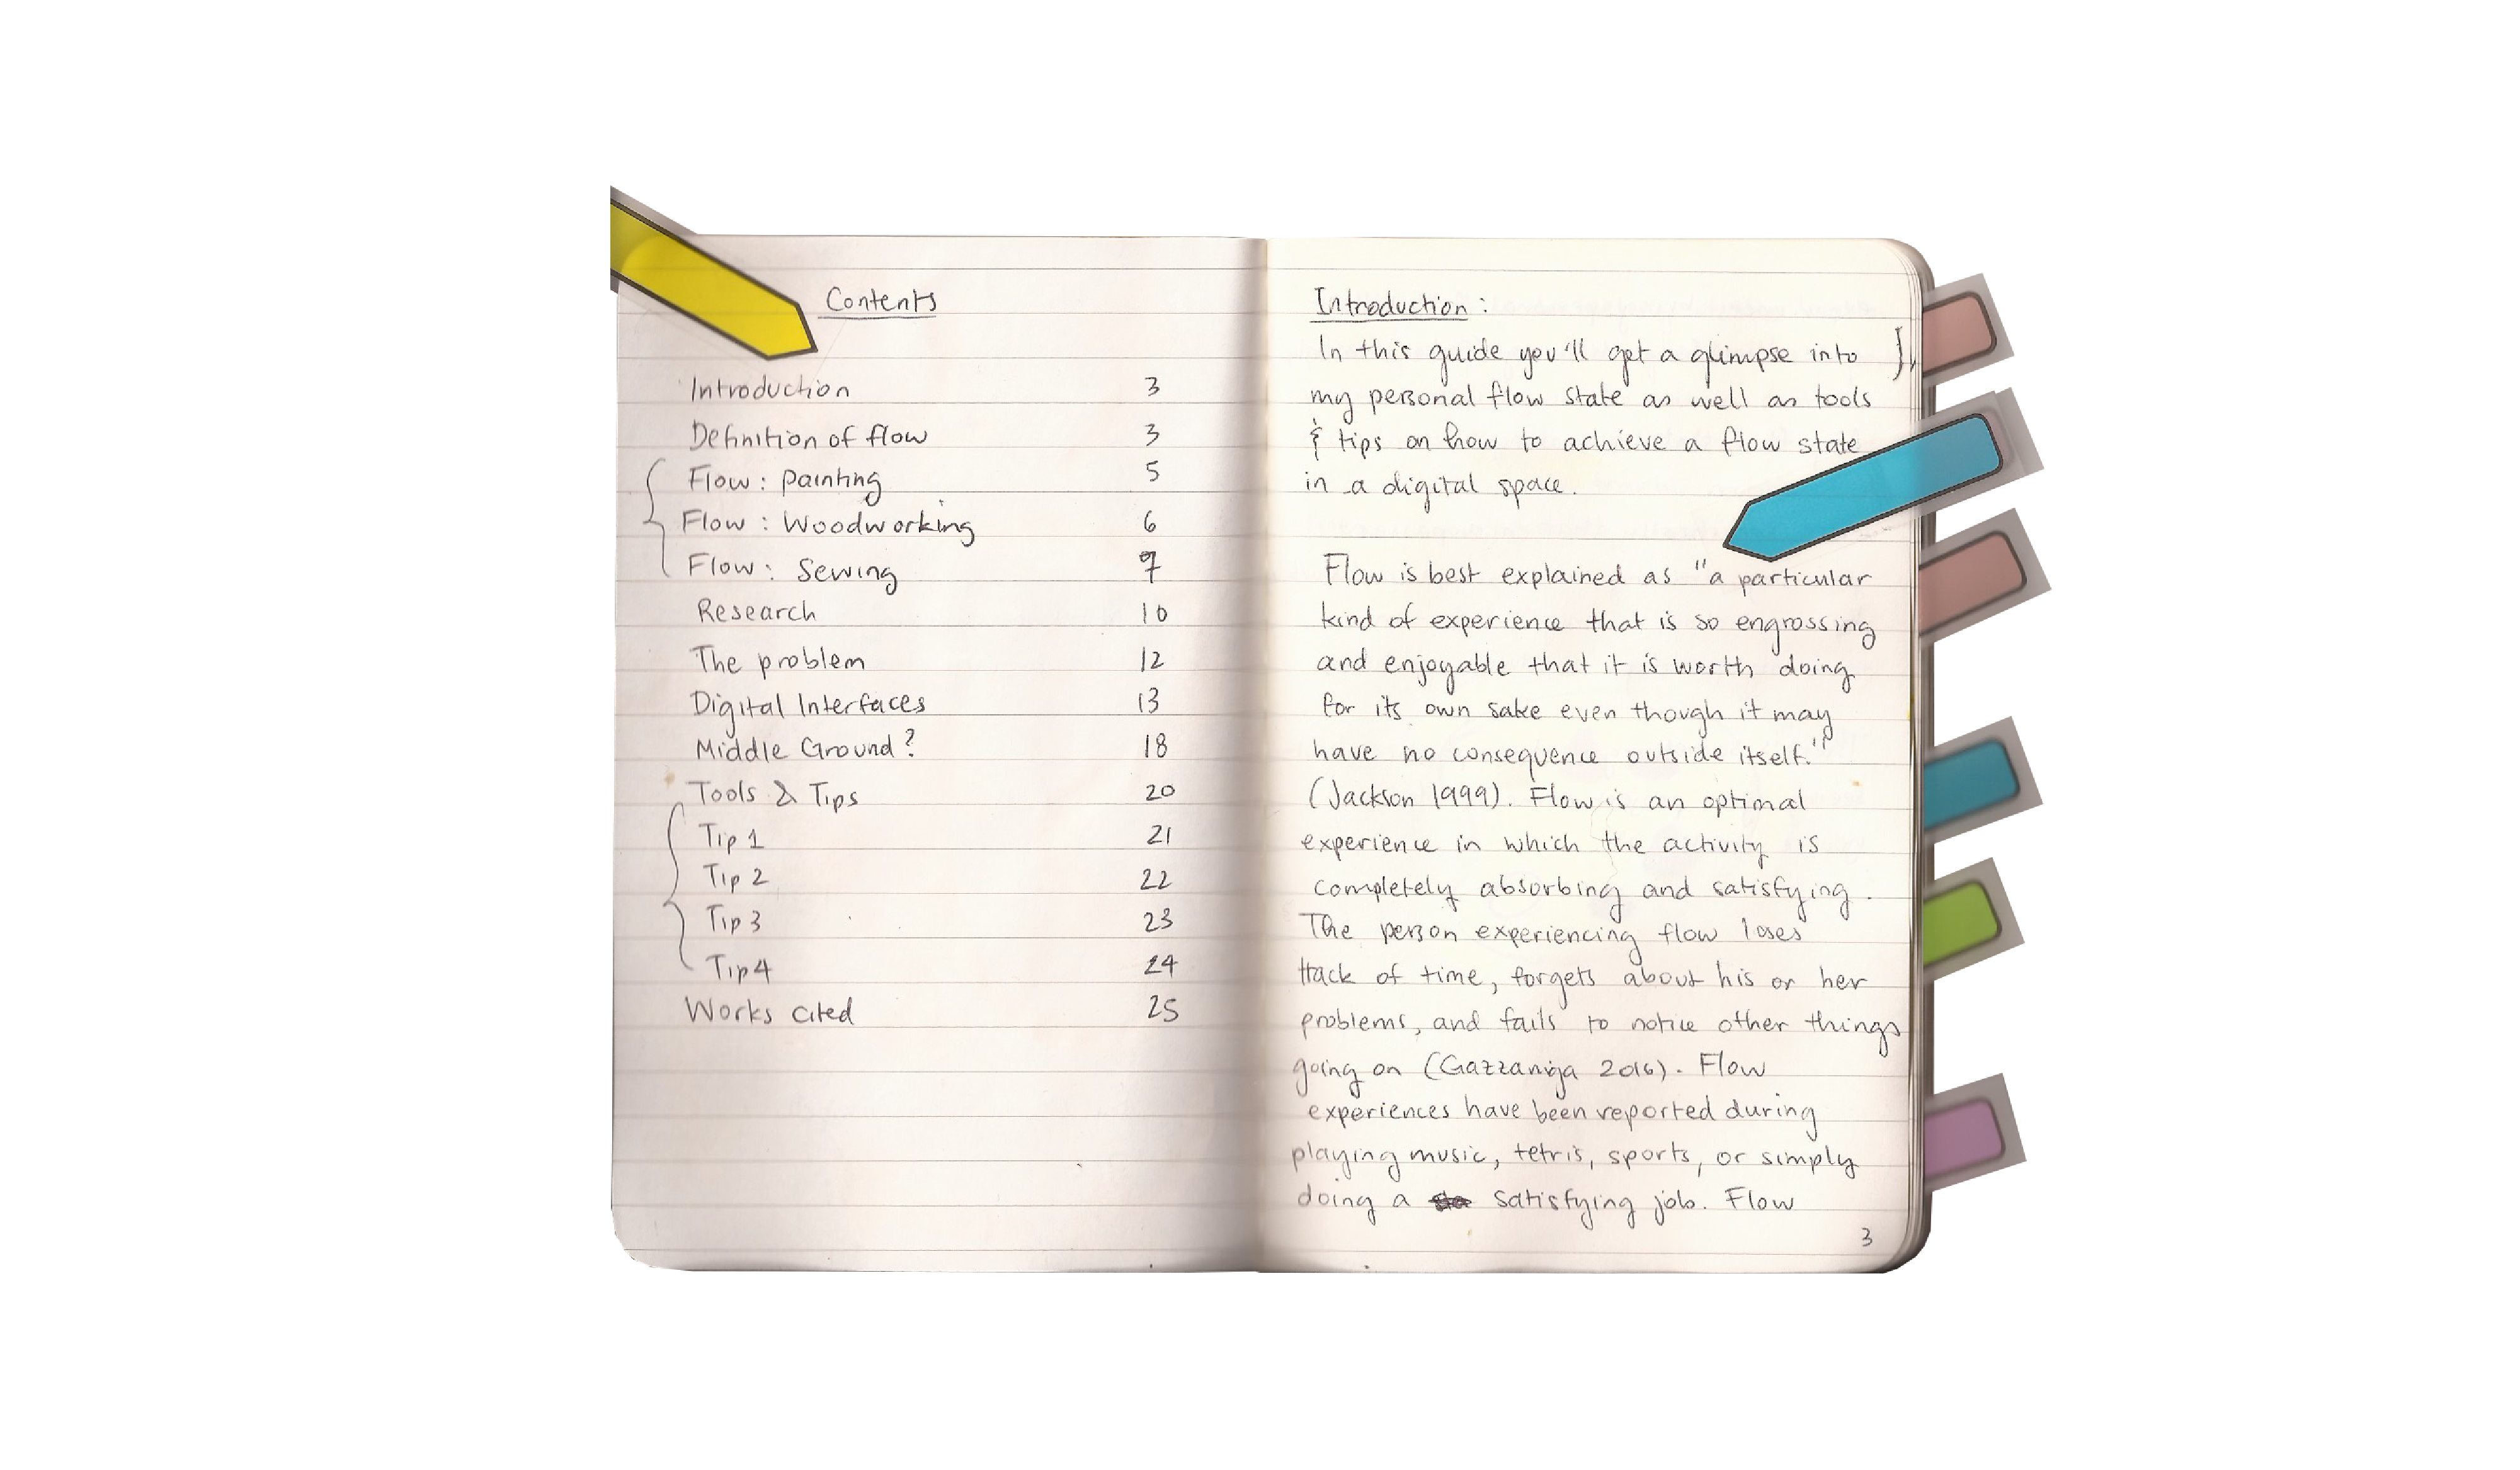 Contents
Introduction 3
Definition of flow 3
Flow: painting 5
Flow: Woodworking 6
Flow: Sewing 7
Research 10
The problem 12
Digital Interfaces 13
Middle Ground? 18
Tools & Tips 20
Tip 1 21
Tip 2 22
Tip 3 23
Tip 4 24
Works cited 25
Introduction:
In this guide you'll get a glimpse into
my personal flow state as well as tools
& tips on how to achieve a flow state
in a digital space.
Flow is best explained as "a particular
kind of experience that is so engrossing
and enjoyable that it is worth doing
for its own sake even though it may
have no consequence outside itself."
(Jackson 1999). Flow is an optimal
experience in which the activity is
completely absorbing and satisfying.
The person experiencing flow loses
track of time, forgets about his or her
problems, and fails to notice other things
going on (Gazzaniga 2016). Flow
experiences have been reported during
playing music, tetris, sports, or simply
doing a satisfying job. Flow
3